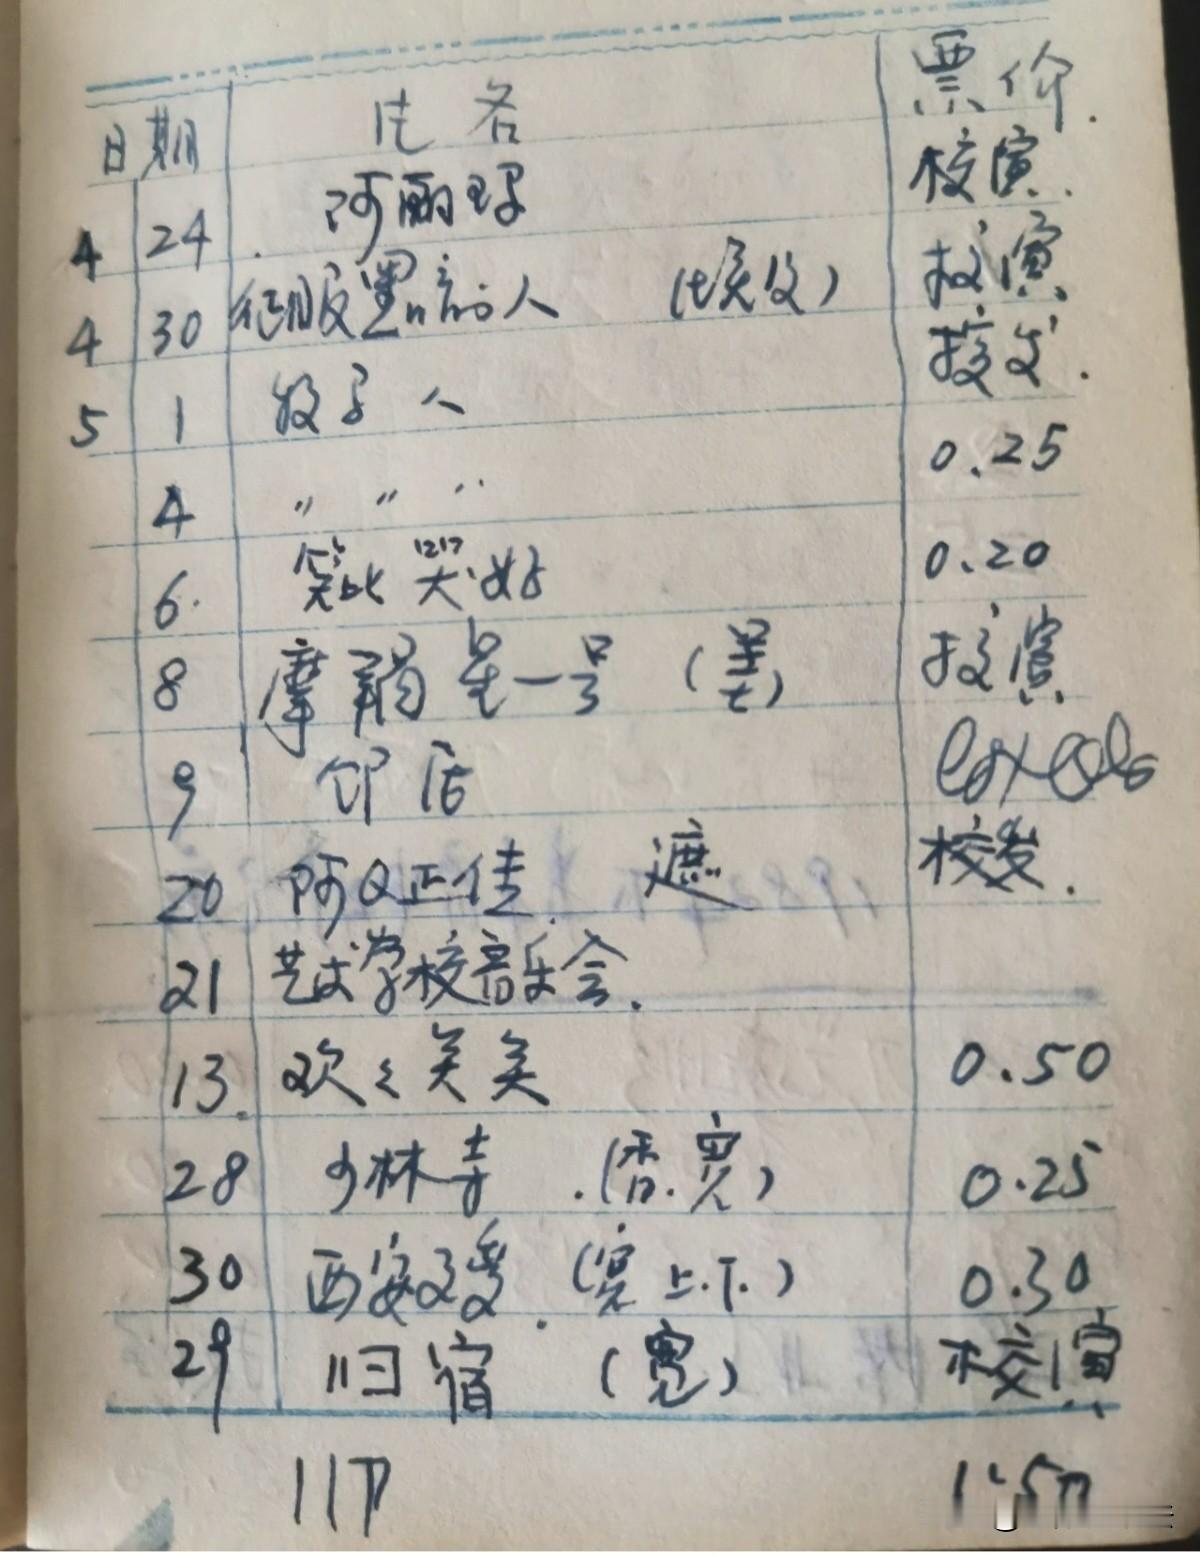 日期 片名 票价.
4 24 . 阿丽玛 校演.
4 30 征服黑暗的人 (埃及) 校演.
5 1 牧马人 校发.
4 〃 〃 〃 0.25
6. 笑比哭好 0.20
8 摩羯星一号 (美) 校演
9 邻居
20 阿Q正传. 遮 校发.
21 艺术学校音乐会.
13. 欢々笑笑 0.50
28 少林寺 .(香.宽) 0.25
30 西安事变. (宽 上.下.) 0.30
29 归宿 (宽) 校演
11